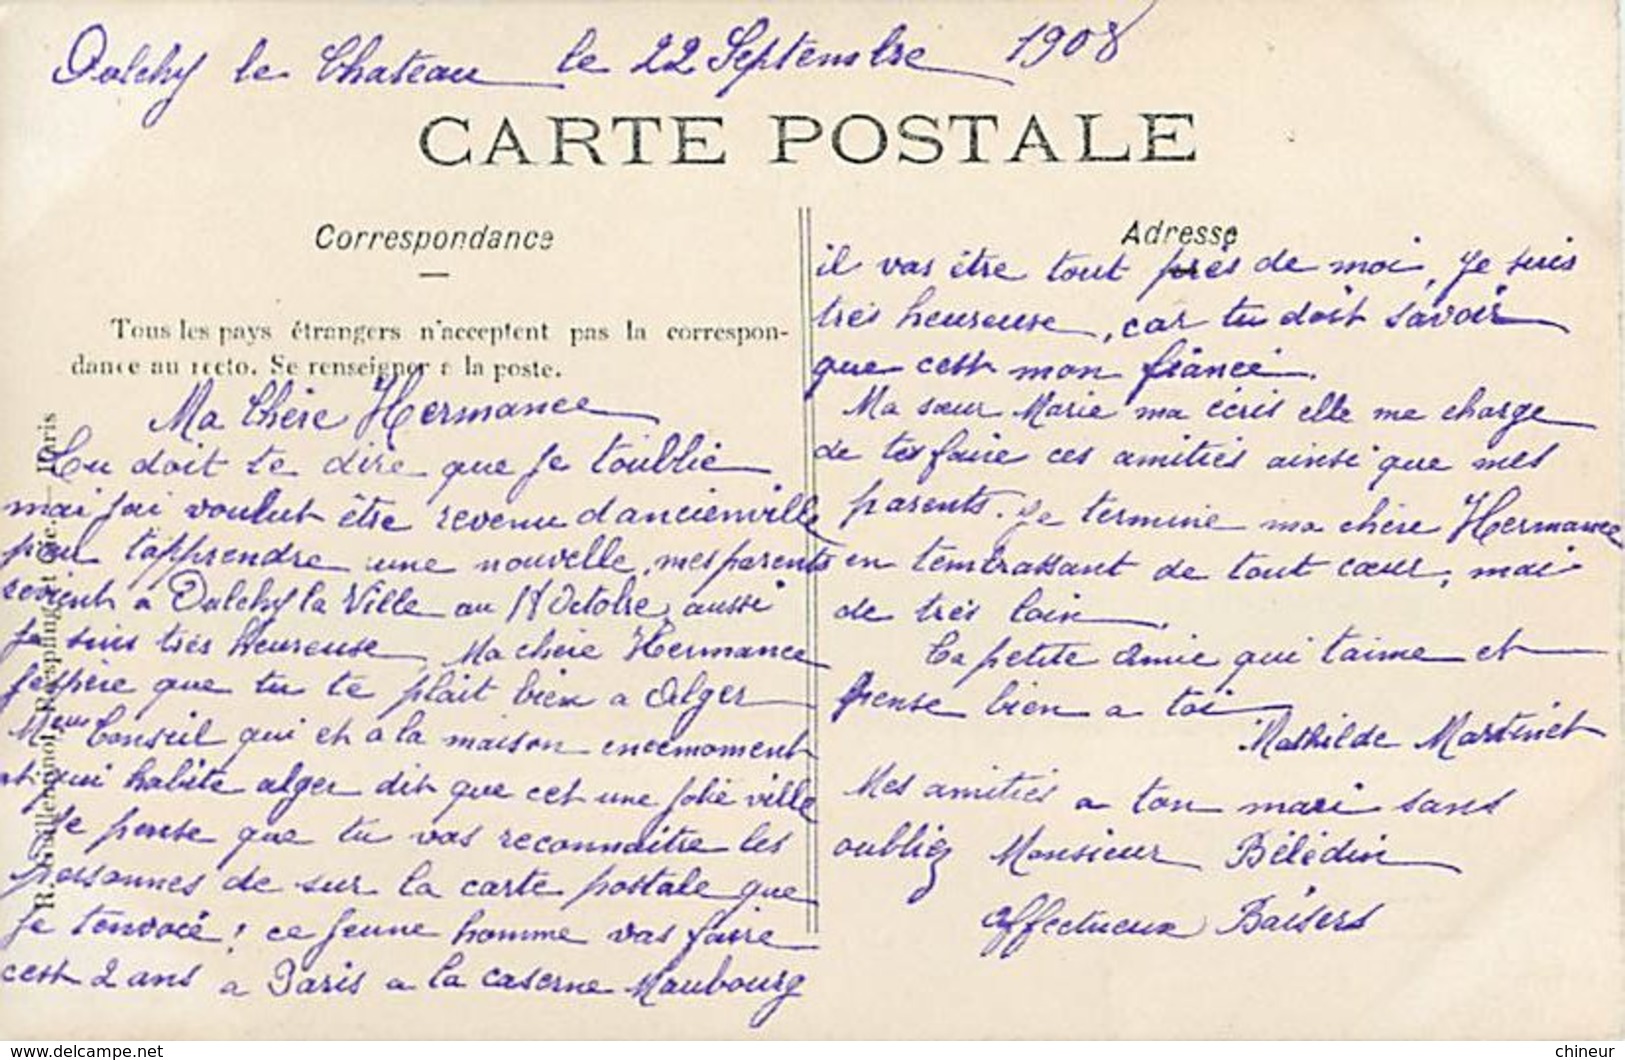 Oulchy le Chateau le 22 Septembre 1908
CARTE POSTALE
Correspondance
Tous les pays étrangers n'acceptent pas la correspon-
dance au recto. Se renseigner à la poste.
Ma Chère Hermance
Tu doit te dire que je toublie
mai jai voulut être revenu dancienville
pour t'apprendre une nouvelle, mes parents
revient a Oulchy la Ville au 11 Octobre, aussi
je suis très Heureuse, Ma chère Hermance
jespère que tu te plait bien a Alger
Meur Conseil qui et a la maison encemoment
et qui habite alger dit que cet une jolie ville
Je pense que tu vas reconnaitre les
personnes de sur la carte postale que
je tenvoie ; ce jeune homme vas faire
cest 2 ans a Paris a la caserne Maubourg
Adresse
il vas être tout près de moi, Je suis
très heureuse, car tu doit savoir
que cest mon fiancé.
Ma sœur Marie ma écris elle me charge
de tes faire ces amitiés ainsi que mes
parents. Je termine ma chère Hermance
en tembrassant de tout cœur, mai
de très loin.
Ta petite Amie qui taime et
pense bien a toi
Mathilde Martinet
Mes amitiés a ton mari sans
oubliez Monsieur Bélédin
affectueux Baisers
R. Guilleminot, Bœspflug et Cie. — Paris
chineur